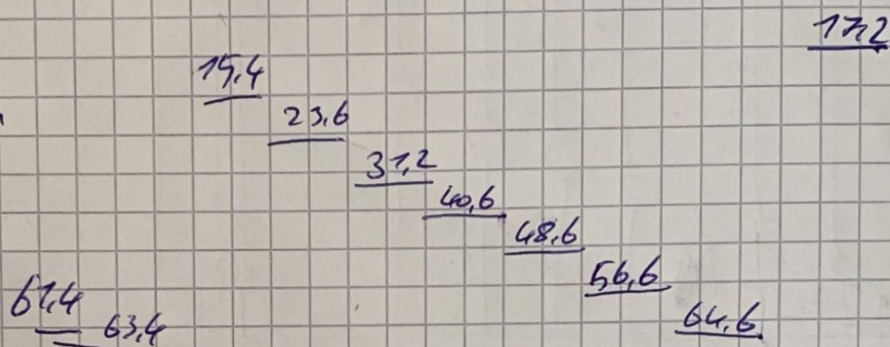 17,2
15,4
23,6
31,2
40,6
48,6
56,6
61,4
63,4
64,6